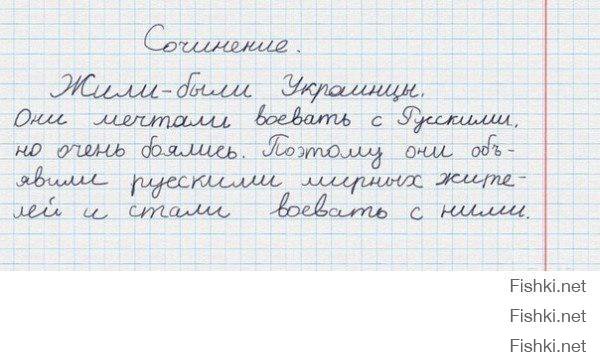 Сочинение.
Жили-были Украинцы.
Они мечтали воевать с Русскими,
но очень боялись. Поэтому они объ-
явили русскими мирных жите-
лей и стали воевать с ними.
Fishki.net
Fishki.net
Fishki.net